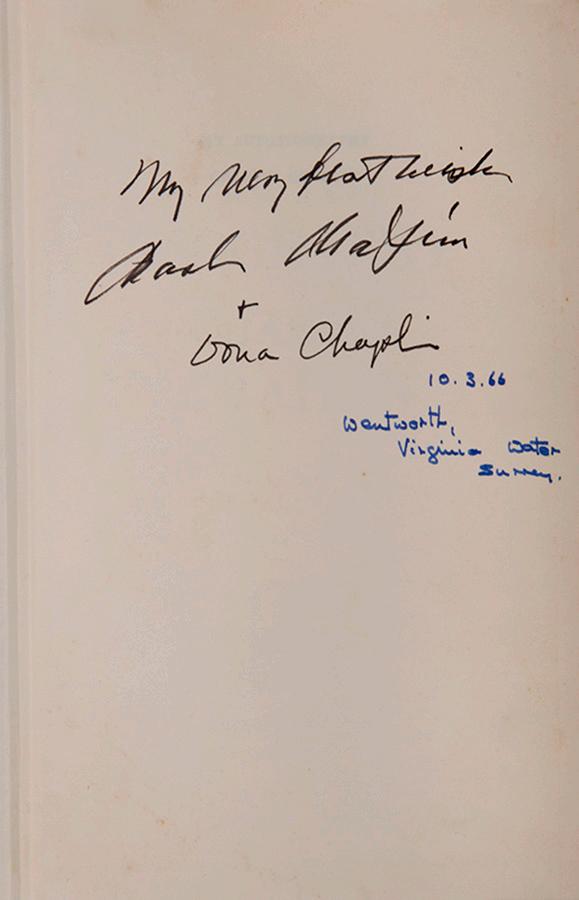 My Very best wishes
Charlie Chaplin
+
Oona Chaplin
10.3.66
Wentworth,
Virginia Water
Surrey.